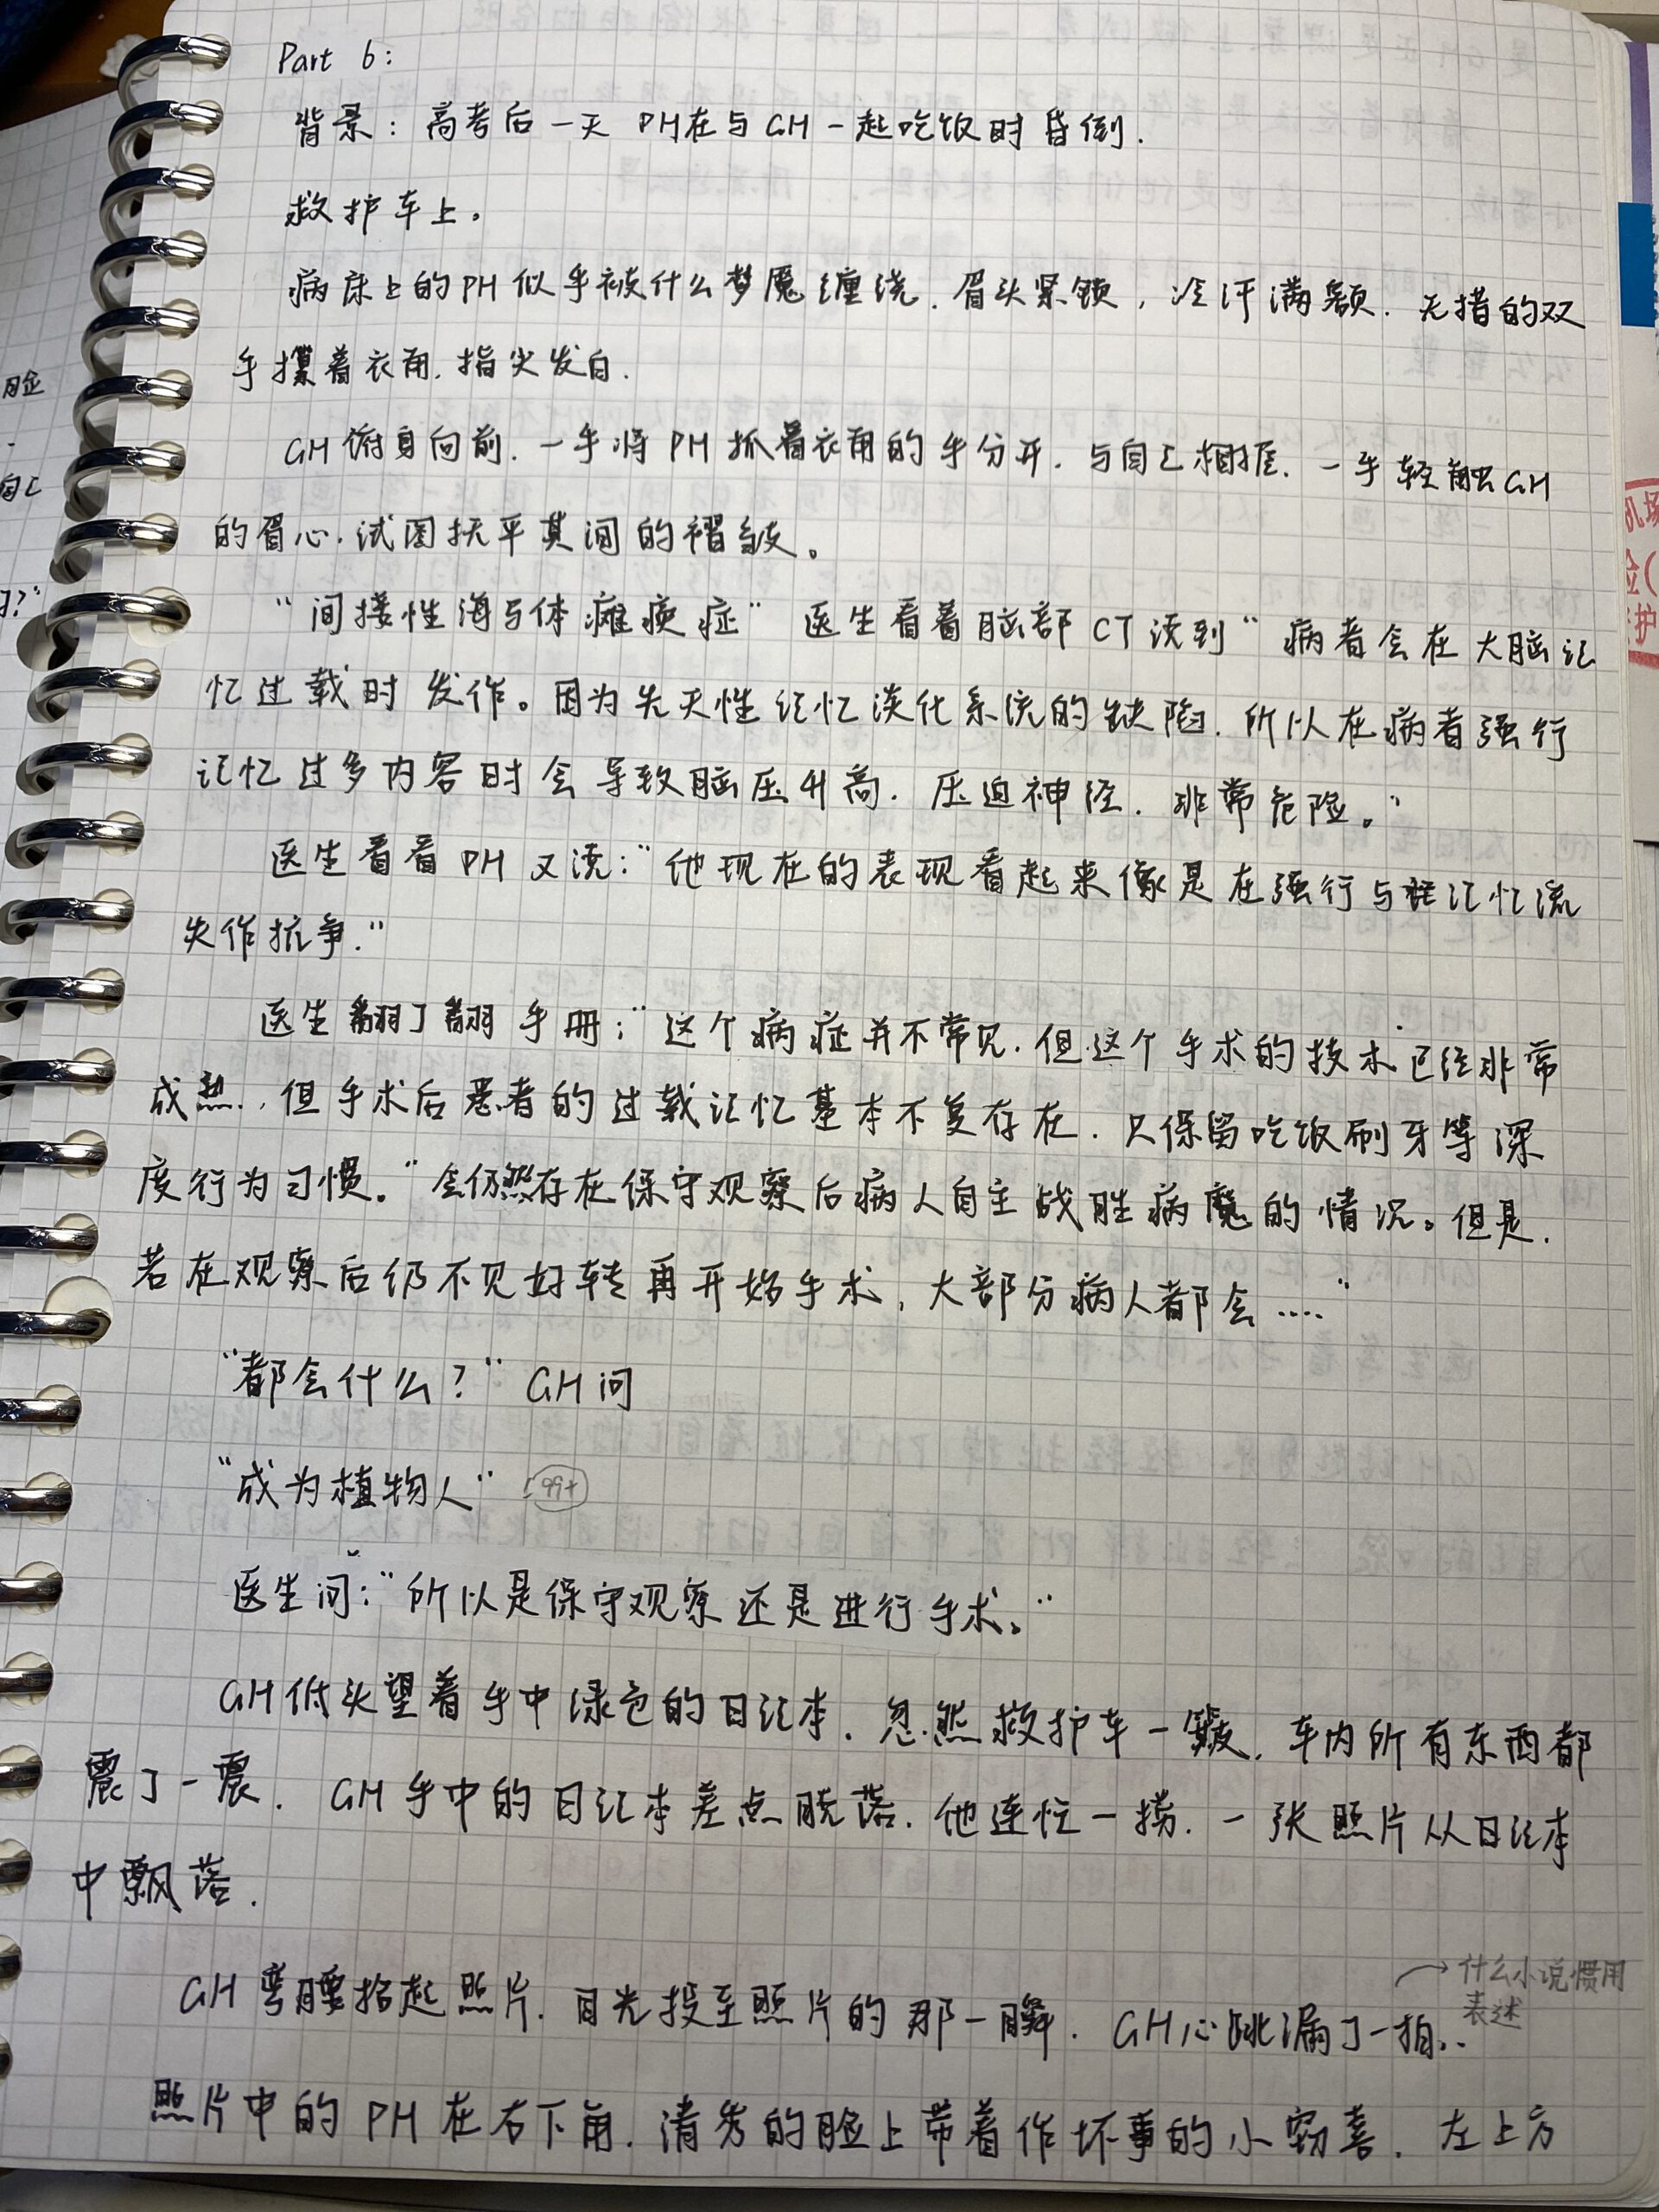 Part 6:
背景：高考后一天 PH在与GH一起吃饭时昏倒.
救护车上。
病床上的PH似乎被什么梦魇缠绕. 眉头紧锁, 冷汗满额. 无措的双
手攥着衣角. 指尖发白.
GH俯身向前. 一手将PH抓着衣角的手分开. 与自己相握. 一手轻触GH
的眉心. 试图抚平其间的褶皱。
"间接性海马体瘫痪症" 医生看着脑部CT说到 "病者会在大脑记
忆过载时 发作。因为先天性记忆淡化系统的缺陷. 所以在病者强行
记忆过多内容时会 导致脑压升高. 压迫神经. 非常危险。"
医生看看PH又说："他现在的表现看起来像是在强行与记忆流
失作抗争."
医生翻了翻手册："这个病症并不常见. 但这个手术的技术已经非常
成熟. 但手术后患者的过载记忆基本不复存在. 只保留吃饭刷牙等深
度行为习惯。"会仍然存在保守观察后病人自主战胜病魔的情况。但是.
若在观察后仍不见好转再开始手术, 大部分病人都会····"
"都会什么？" GH问
"成为植物人" 99+
医生问："所以是保守观察还是进行手术。"
GH低头望着手中绿色的日记本. 忽然救护车一簸. 车内所有东西都
震了一震. GH手中的日记本差点脱落. 他连忙一捞. 一张照片从日记本
中飘落.
GH弯腰拾起照片. 目光投至照片的那一瞬. GH心跳漏了一拍..
→什么小说惯用
表述
照片中的PH在右下角. 清秀的脸上带着作坏事的小窃喜. 左上方
脸
自己
?"
机场
险(
护